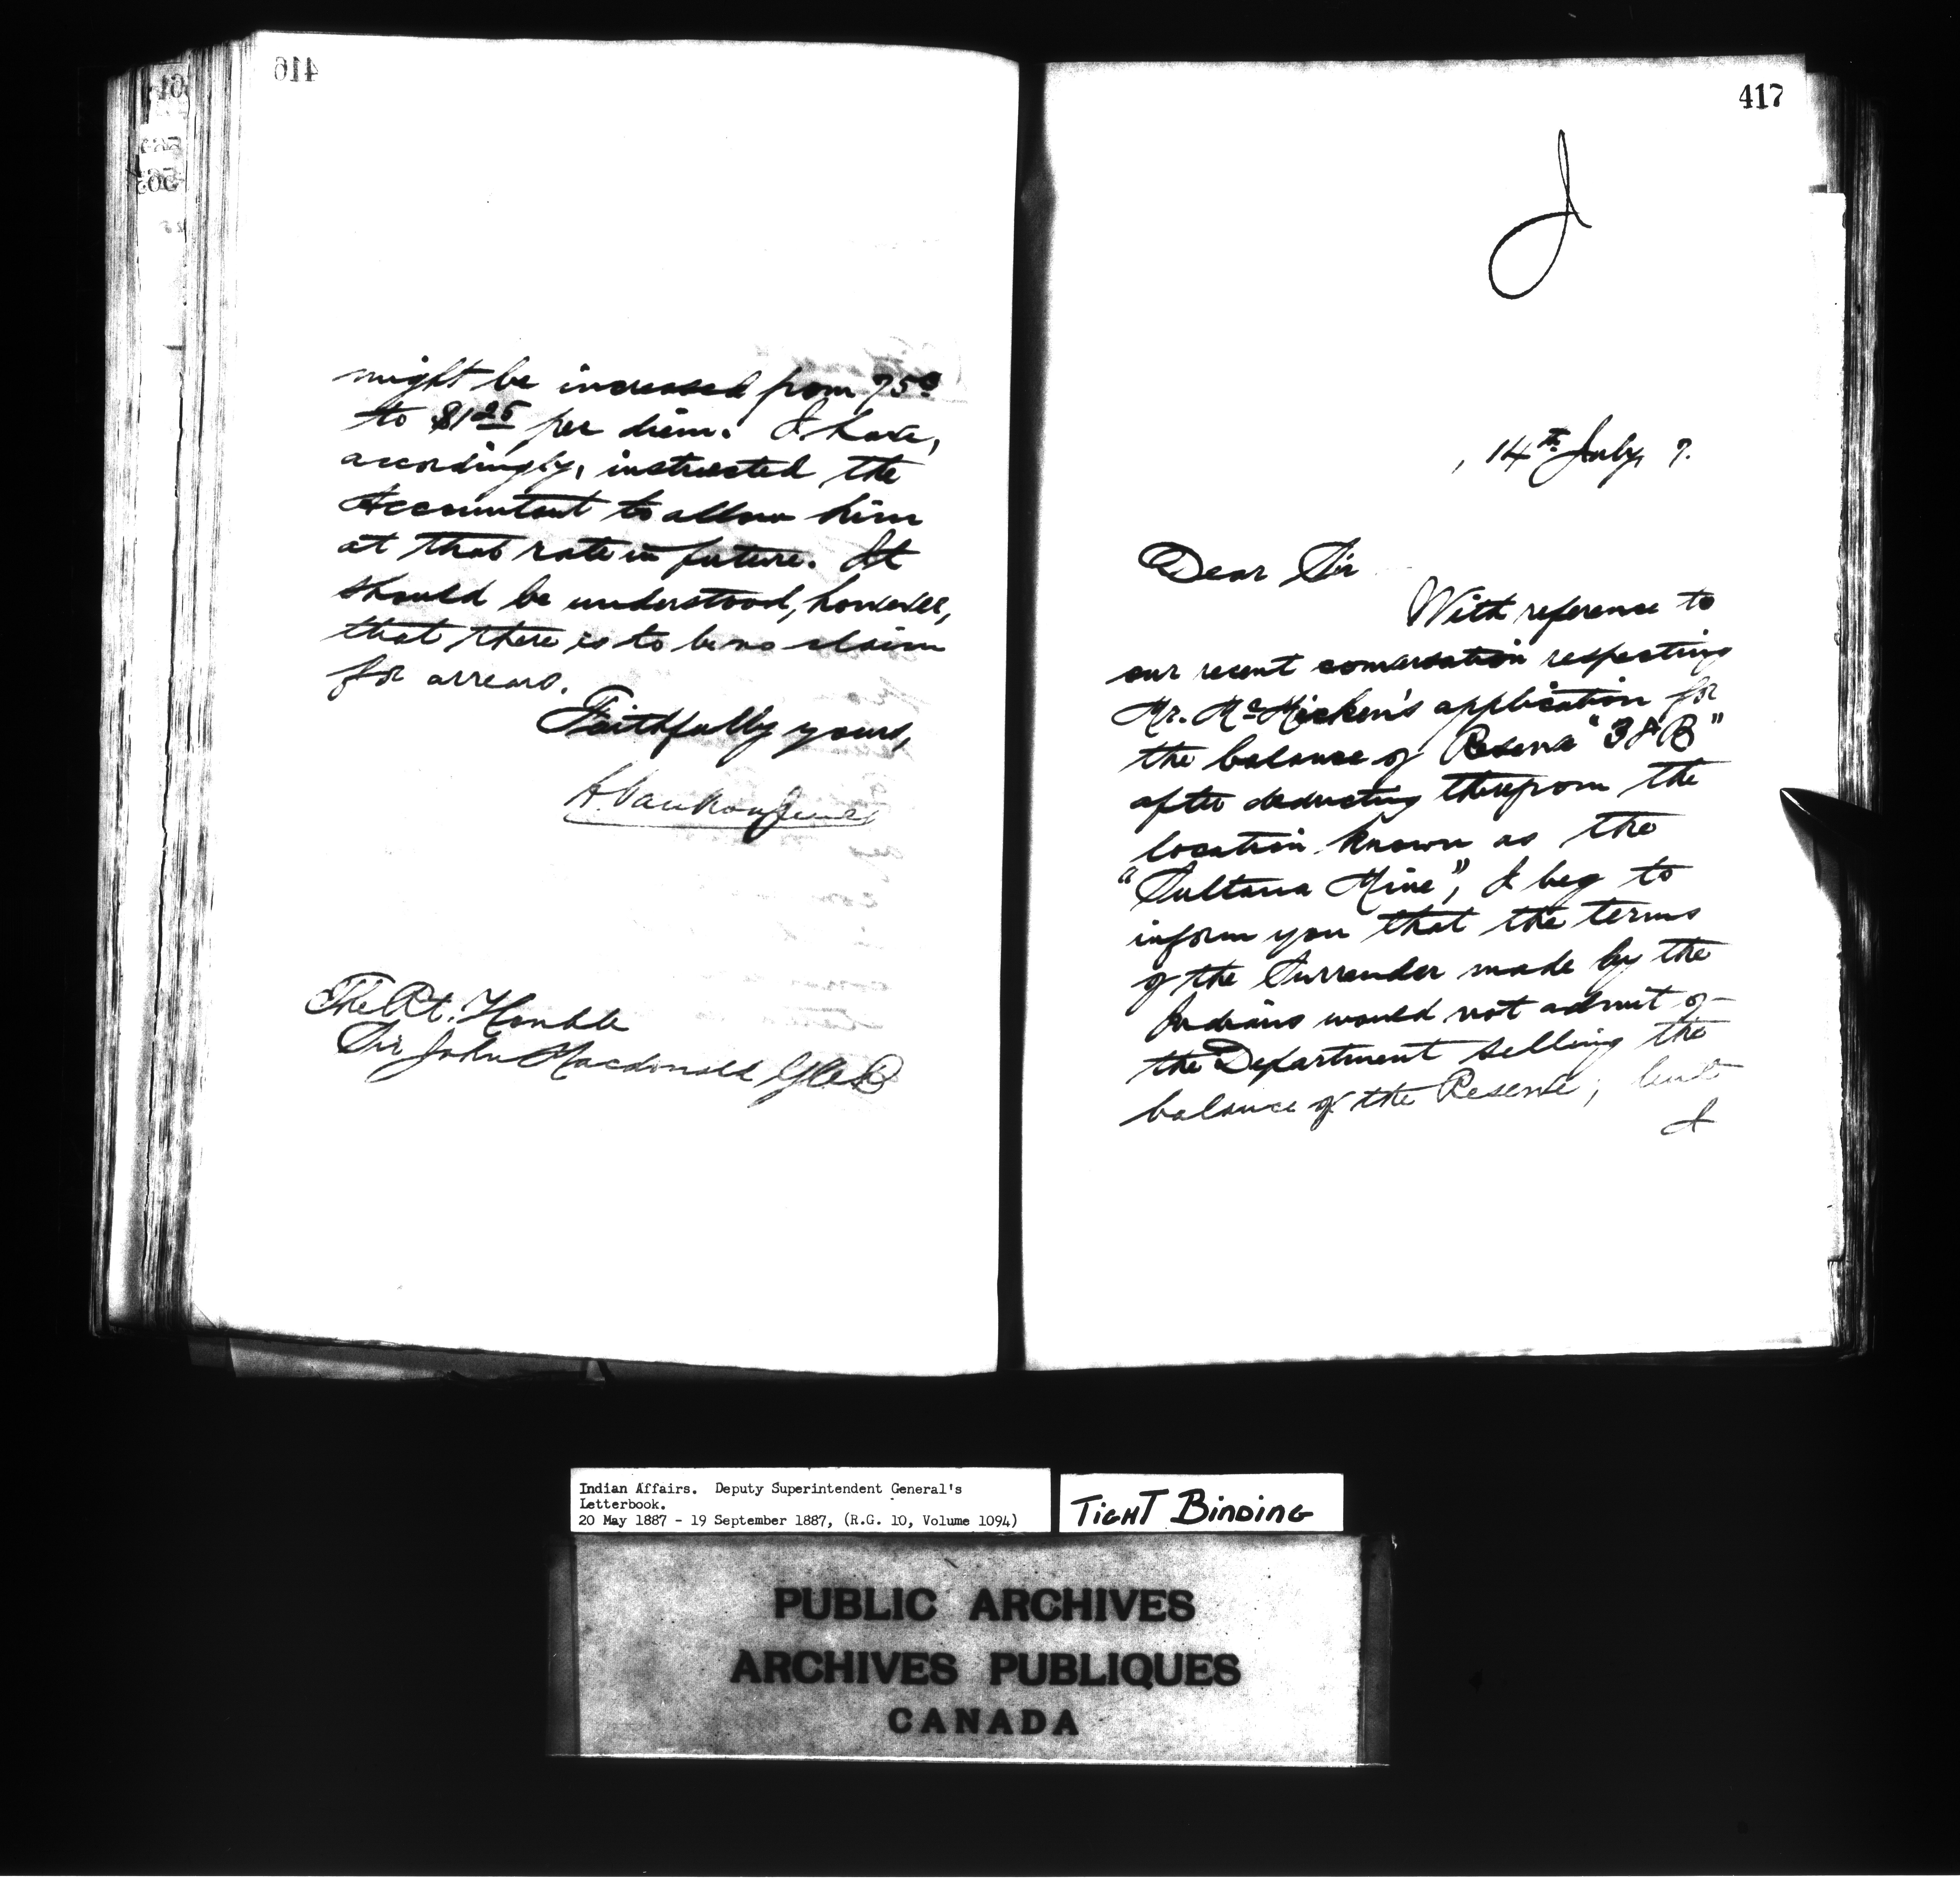 416
might be increased from 75c
to $1.25 per diem. I have,
accordingly, instructed the
Accountant to allow him
at that rate in future. It
should be understood, however,
that there is to be no claim
for arrears.
Faithfully yours,
L. Vankoughnet
The Rt. Honble
Sir John Macdonald GCB
417
J
, 14th July, 7.
Dear Sir
With reference to
our recent conversation respecting
Mr. McMicken's application for
the balance of Reserve "38B"
after deducting therefrom the
location known as the
"Sultana Mine", I beg to
inform you that the terms
of the Surrender made by the
Indians would not admit of
the Department selling the
balance of the Reserve; but
I
Indian Affairs. Deputy Superintendent General's
Letterbook.
20 May 1887 - 19 September 1887, (R.G. 10, Volume 1094)
TIGHT BINDING
PUBLIC ARCHIVES
ARCHIVES PUBLIQUES
CANADA